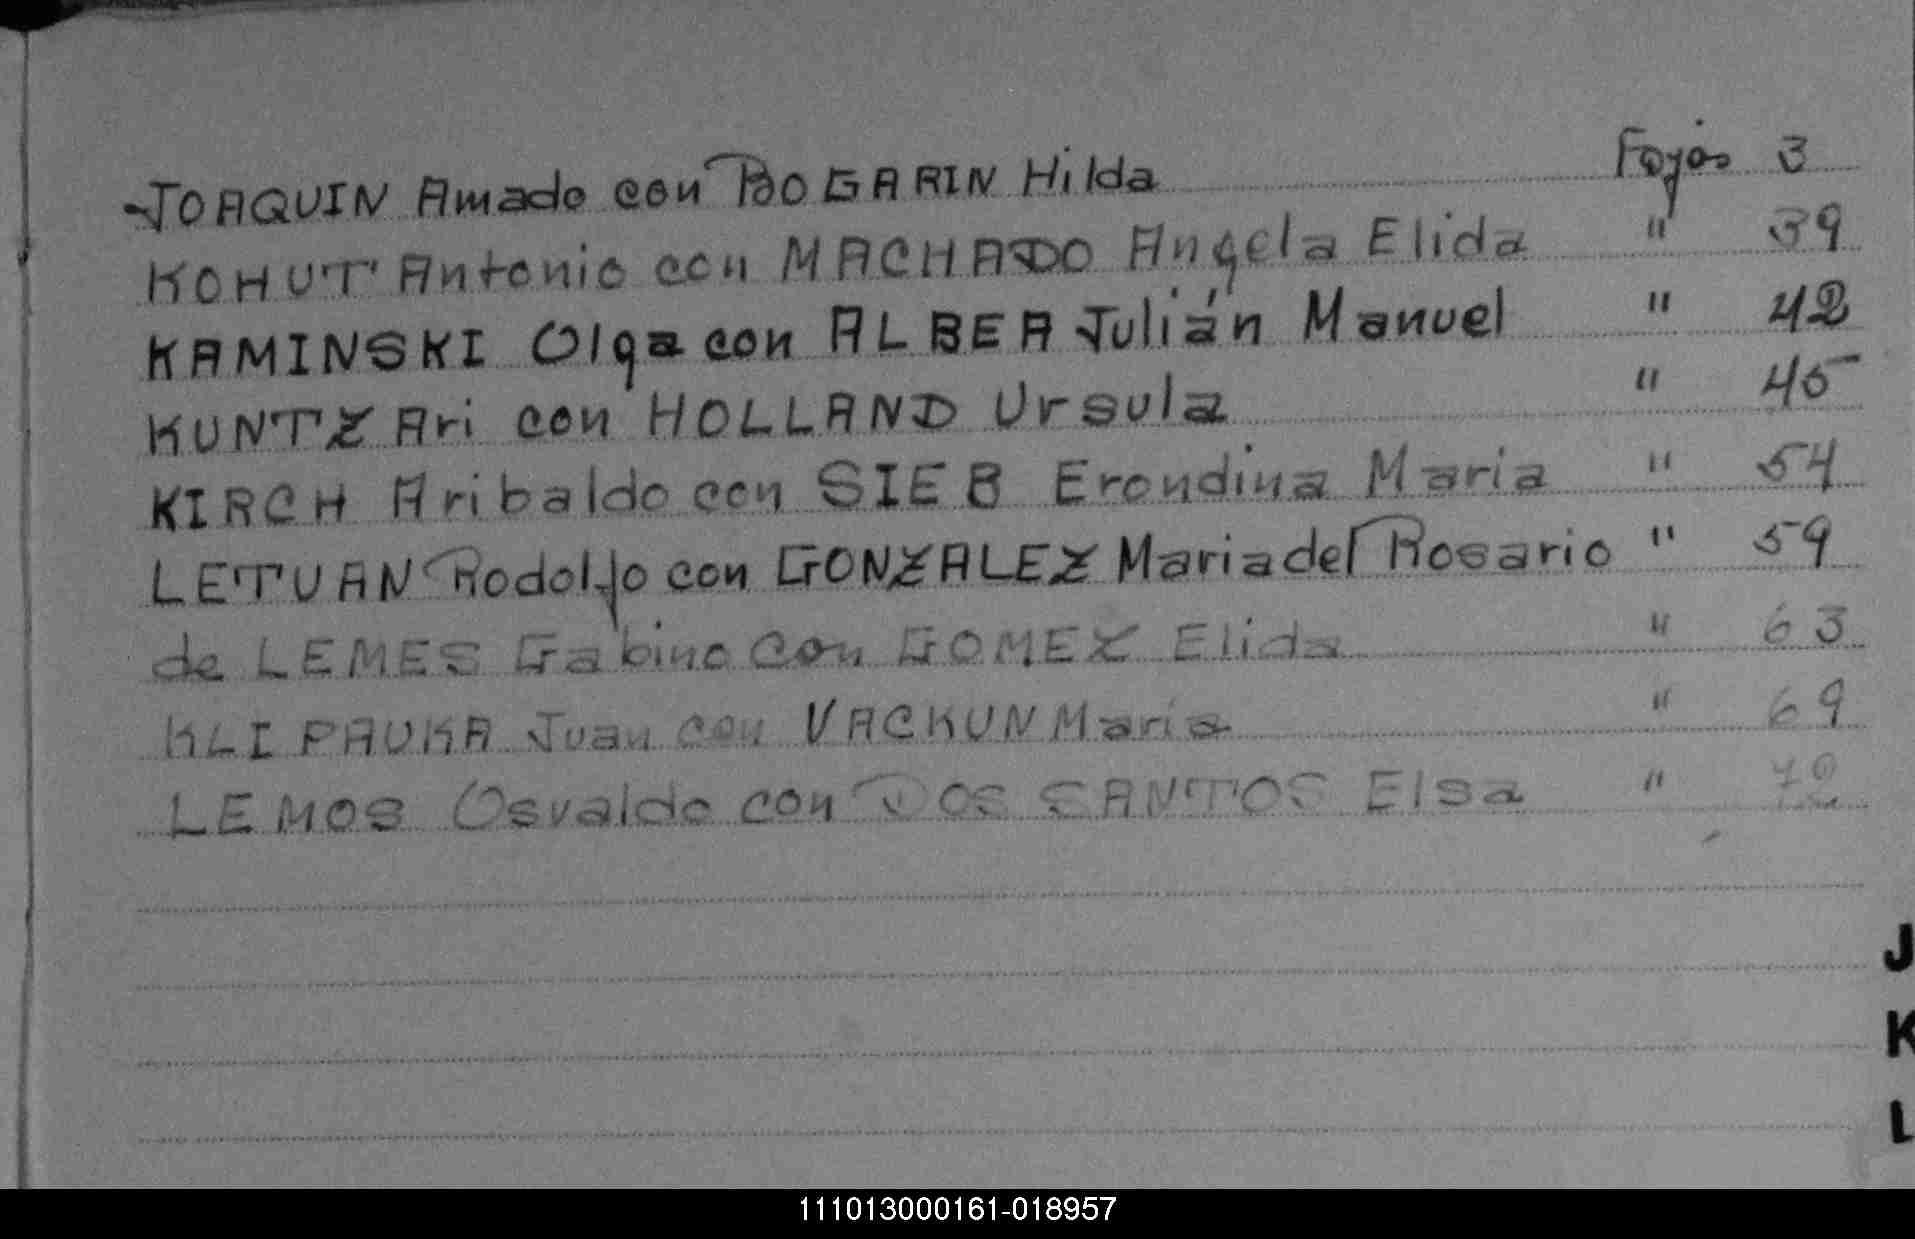 JOAQUIN Amado con BOGARIN Hilda Fojas 3
KOHUT Antonio con MACHADO Angela Elida " 39
KAMINSKI Olga con ALBEA Julián Manuel " 42
KUNTZ Ari con HOLLAND Ursula " 45
KIRCH Aribaldo con SIEB Erondina Maria " 54
LETUAN Rodolfo con GONZALEZ Maria del Rosario " 59
de LEMES Gabino con GOMEZ Elida " 63
KLIPAUKA Juan con VACKUN Maria " 69
LEMOS Osvaldo con DOS SANTOS Elsa "
J
K
L
111013000161-018957